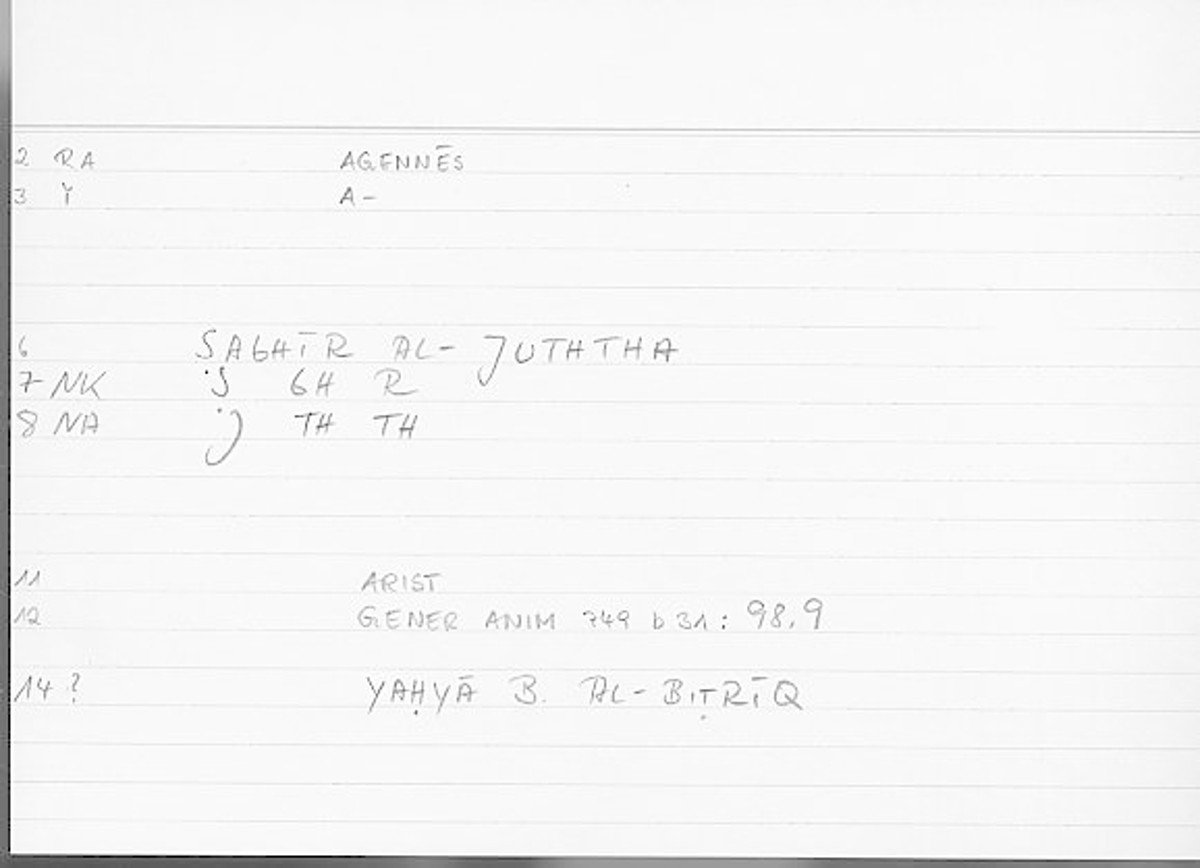 2 RA AGENNĒS
3 Y A-
6 ṢAGHĪR AL-JUTHTHA
7 NK Ṣ GH R
8 NA J TH TH
11 ARIST
12 GENER ANIM 749 b 31 : 98.9
14 ? YAḤYĀ B. AL-BIṬRĪQ